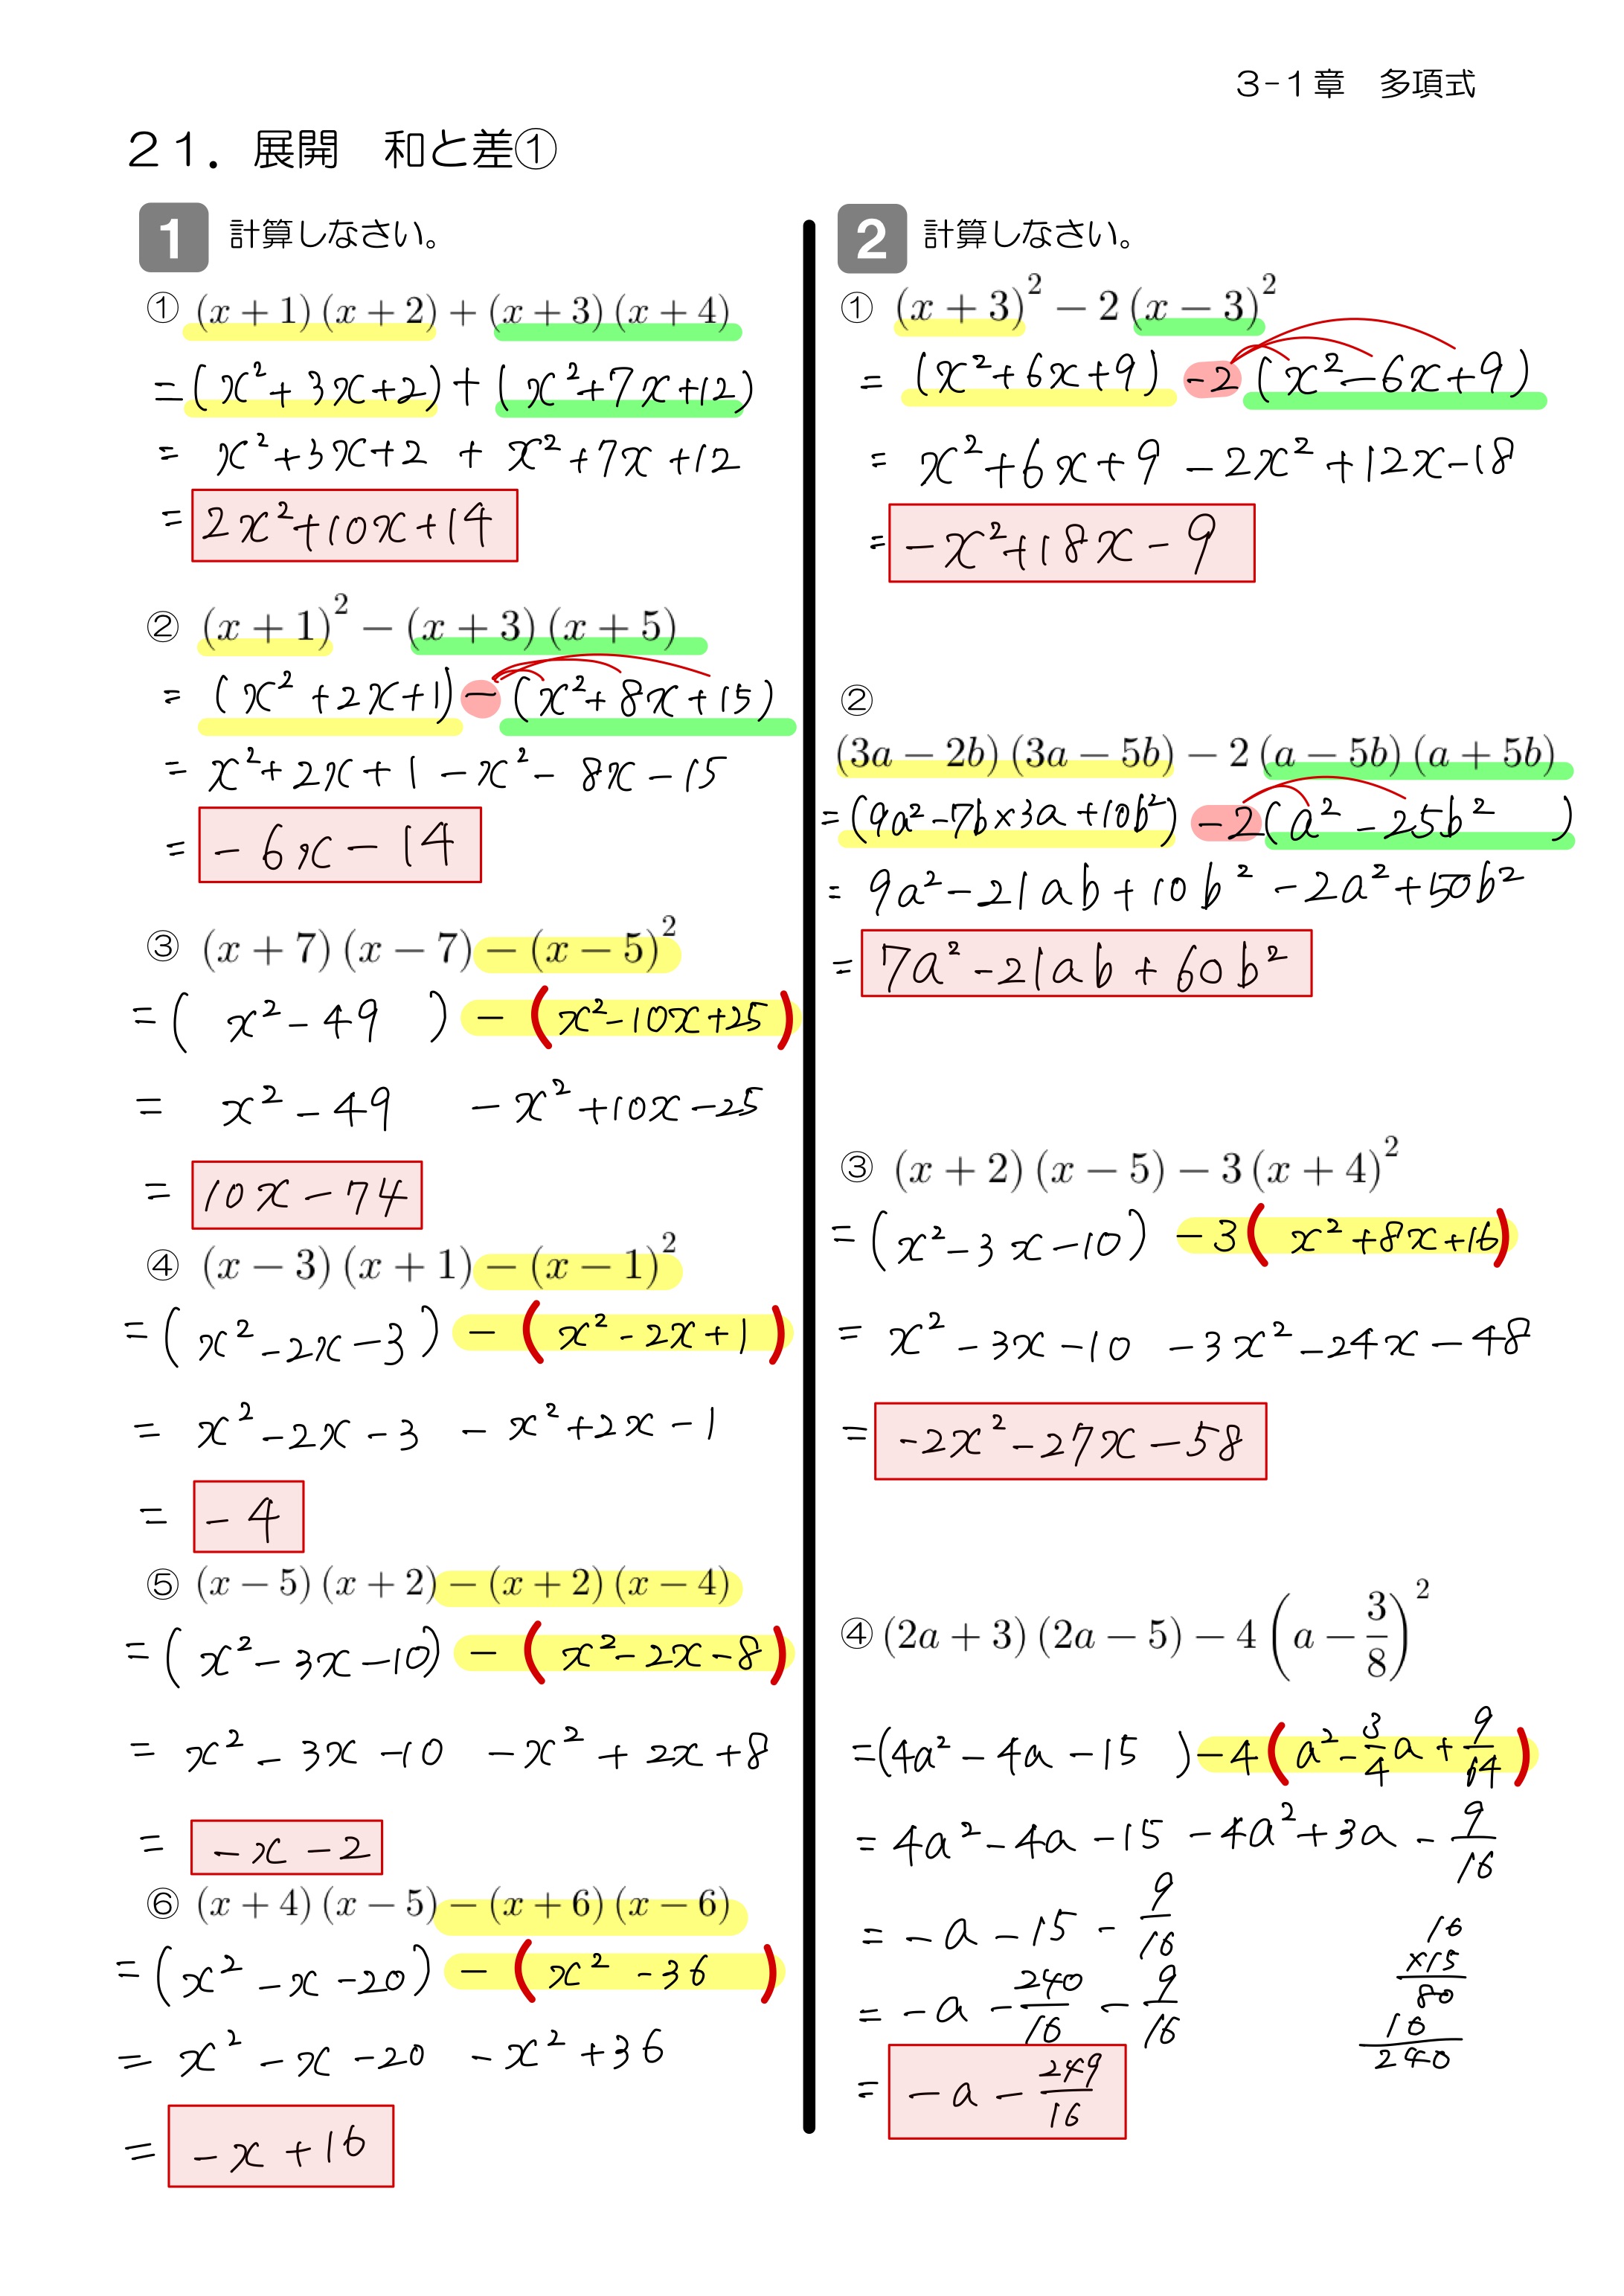 3-1章　多項式
21．展開　和と差①
1 計算しなさい。
① (x + 1)(x + 2) + (x + 3)(x + 4)
= (x²+3x+2)+(x²+7x+12)
= x²+3x+2 + x²+7x+12
= 2x²+10x+14
② (x + 1)² − (x + 3)(x + 5)
= (x²+2x+1)−(x²+8x+15)
= x²+2x+1−x²−8x−15
= −6x−14
③ (x + 7)(x − 7) − (x − 5)²
= (x²−49) − (x²−10x+25)
= x²−49 −x²+10x−25
= 10x−74
④ (x − 3)(x + 1) − (x − 1)²
= (x²−2x−3) − (x²−2x+1)
= x²−2x−3 −x²+2x−1
= −4
⑤ (x − 5)(x + 2) − (x + 2)(x − 4)
= (x²−3x−10) − (x²−2x−8)
= x²−3x−10 −x²+2x+8
= −x−2
⑥ (x + 4)(x − 5) − (x + 6)(x − 6)
= (x²−x−20) − (x²−36)
= x²−x−20 −x²+36
= −x+16
2 計算しなさい。
① (x + 3)² − 2(x − 3)²
= (x²+6x+9) −2(x²−6x+9)
= x²+6x+9 −2x²+12x−18
= −x²+18x−9
②
(3a − 2b)(3a − 5b) − 2(a − 5b)(a + 5b)
= (9a²−7b×3a+10b²) −2(a²−25b²)
= 9a²−21ab+10b² −2a²+50b²
= 7a²−21ab+60b²
③ (x + 2)(x − 5) − 3(x + 4)²
= (x²−3x−10) −3(x²+8x+16)
= x²−3x−10 −3x²−24x−48
= −2x²−27x−58
④ (2a + 3)(2a − 5) − 4(a − 3/8)²
= (4a²−4a−15) −4(a²−3/4a+9/64)
= 4a²−4a−15 −4a²+3a−9/16
= −a−15−9/16
= −a−240/16−9/16
= −a−249/16
16
×15
80
16
240